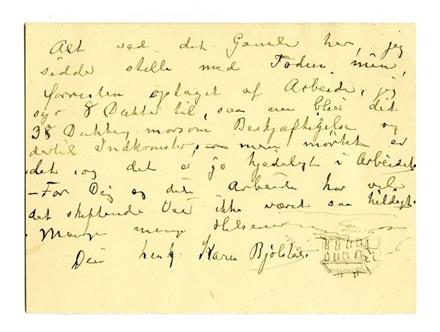 Alt ved det Gamle her, jeg
sidde stelle med Foden min,
forresten optaget af Arbeide, jeg
syr 8 Dukker til, saa nu blir det
38 Dukker, morsom Beskjæftigelse og
dertil Indkomster, men mørkt er
det, og det er jo kjedeligt i Arbeidet
- For Dig og dit Arbeide har vel
det skiftende Veir ikke været saa heldigt.
Mange mange Hilsener
Din heng. Karen Bjølstad